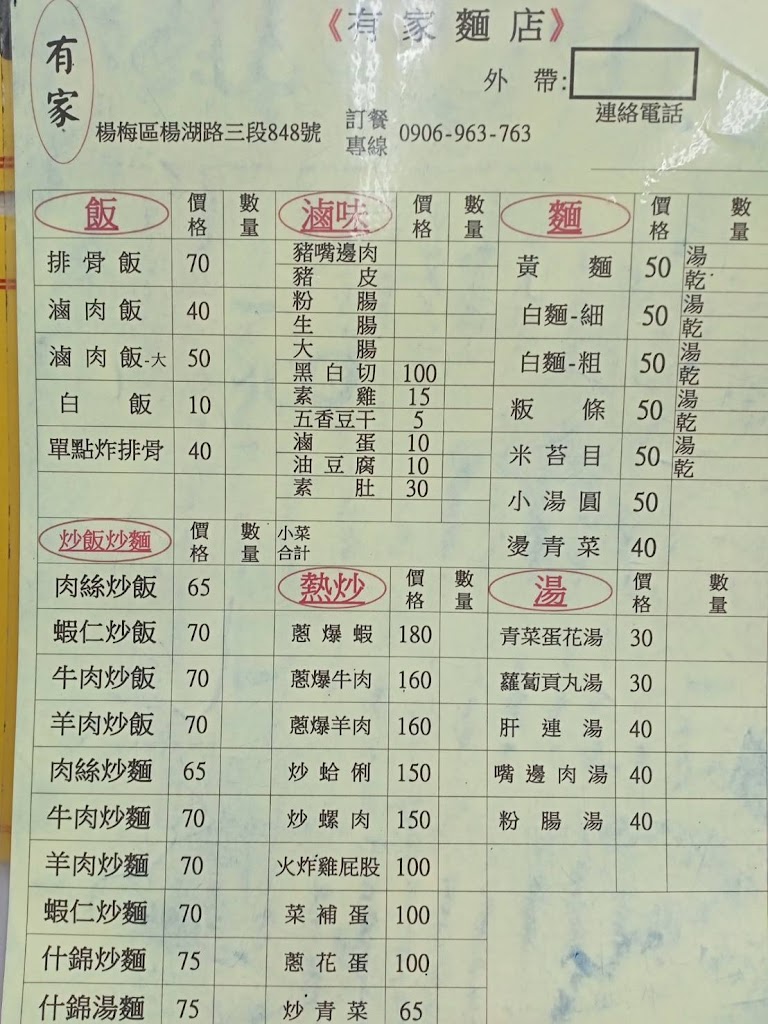 有家
《有家麵店》
外 帶:
連絡電話
楊梅區楊湖路三段848號 訂餐專線 0906-963-763
飯 價格 數量
排骨飯 70
滷肉飯 40
滷肉飯-大 50
白飯 10
單點炸排骨 40
炒飯炒麵 價格 數量
肉絲炒飯 65
蝦仁炒飯 70
牛肉炒飯 70
羊肉炒飯 70
肉絲炒麵 65
牛肉炒麵 70
羊肉炒麵 70
蝦仁炒麵 70
什錦炒麵 75
什錦湯麵 75
滷味 價格 數量
豬嘴邊肉
豬皮
粉腸
生腸
大腸
黑白切 100
素雞 15
五香豆干 5
滷蛋 10
油豆腐 10
素肚 30
小菜合計
熱炒 價格 數量
蔥爆蝦 180
蔥爆牛肉 160
蔥爆羊肉 160
炒蛤俐 150
炒螺肉 150
火炸雞屁股 100
菜補蛋 100
蔥花蛋 100
炒青菜 65
麵 價格 數量
黃麵 50 湯 乾
白麵-細 50 湯 乾
白麵-粗 50 湯 乾
粄條 50 湯 乾
米苔目 50 湯 乾
小湯圓 50
燙青菜 40
湯 價格 數量
青菜蛋花湯 30
蘿蔔貢丸湯 30
肝連湯 40
嘴邊肉湯 40
粉腸湯 40